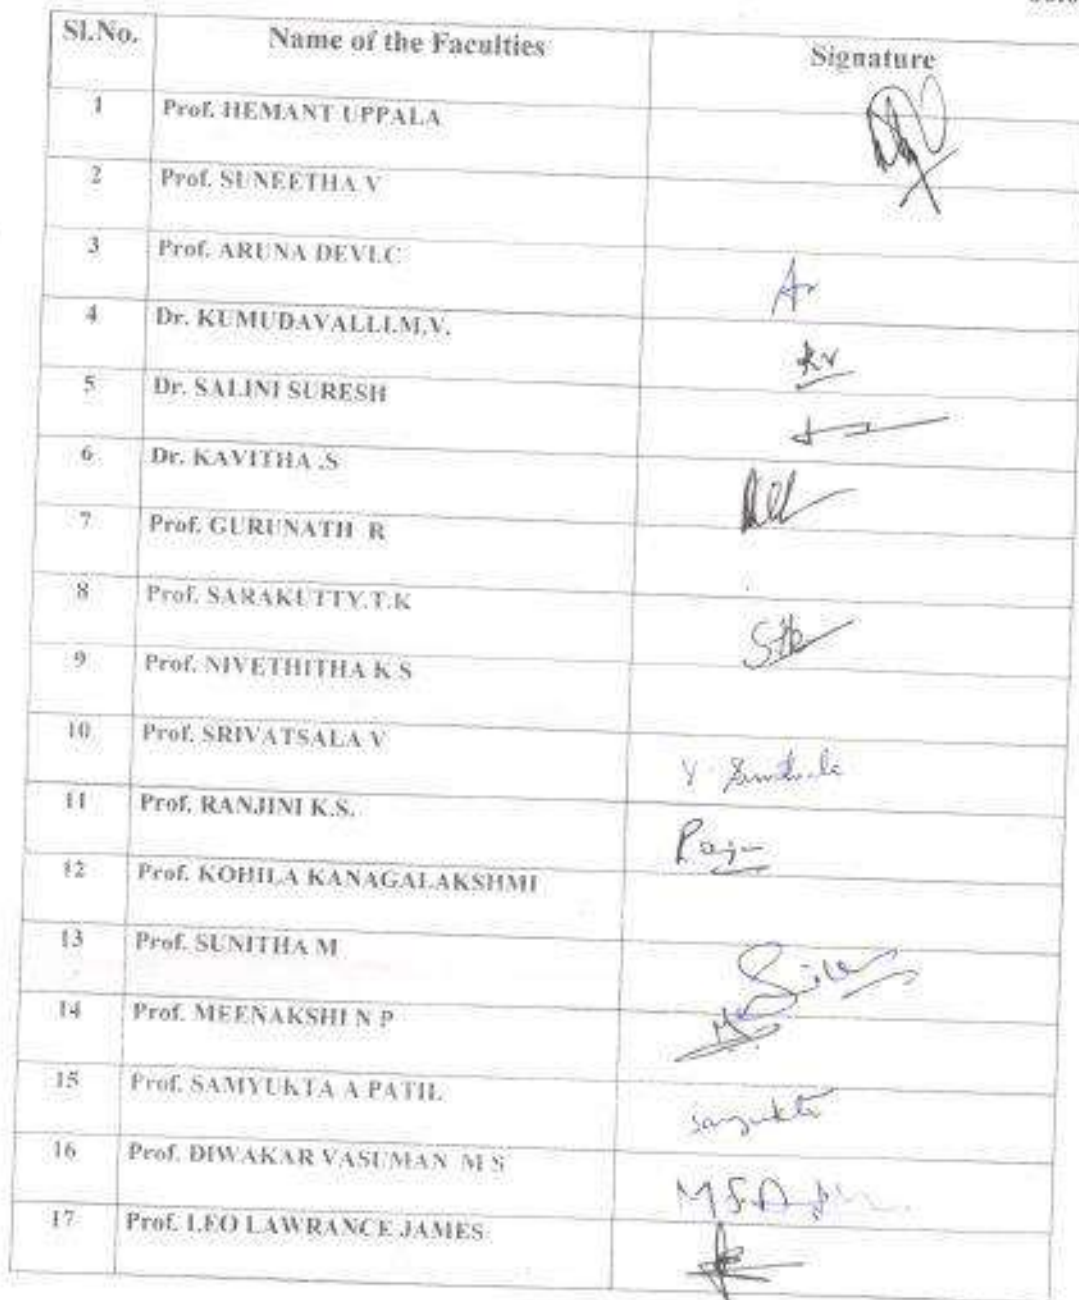 Sl.No. Name of the Faculties Signature
1 Prof. HEMANT UPPALA
2 Prof. SUNEETHA V
3 Prof. ARUNA DEVI.C Ar
4 Dr. KUMUDAVALLI.M.V. kv
5 Dr. SALINI SURESH
6 Dr. KAVITHA .S
7 Prof. GURUNATH R
8 Prof. SARAKUTTY.T.K
9 Prof. NIVETHITHA K S
10 Prof. SRIVATSALA V
11 Prof. RANJINI K.S.
12 Prof. KOHILA KANAGALAKSHMI
13 Prof. SUNITHA M
14 Prof. MEENAKSHI N P
15 Prof. SAMYUKTA A PATIL Samyukta
16 Prof. DIWAKAR VASUMAN M S
17 Prof. LEO LAWRANCE JAMES